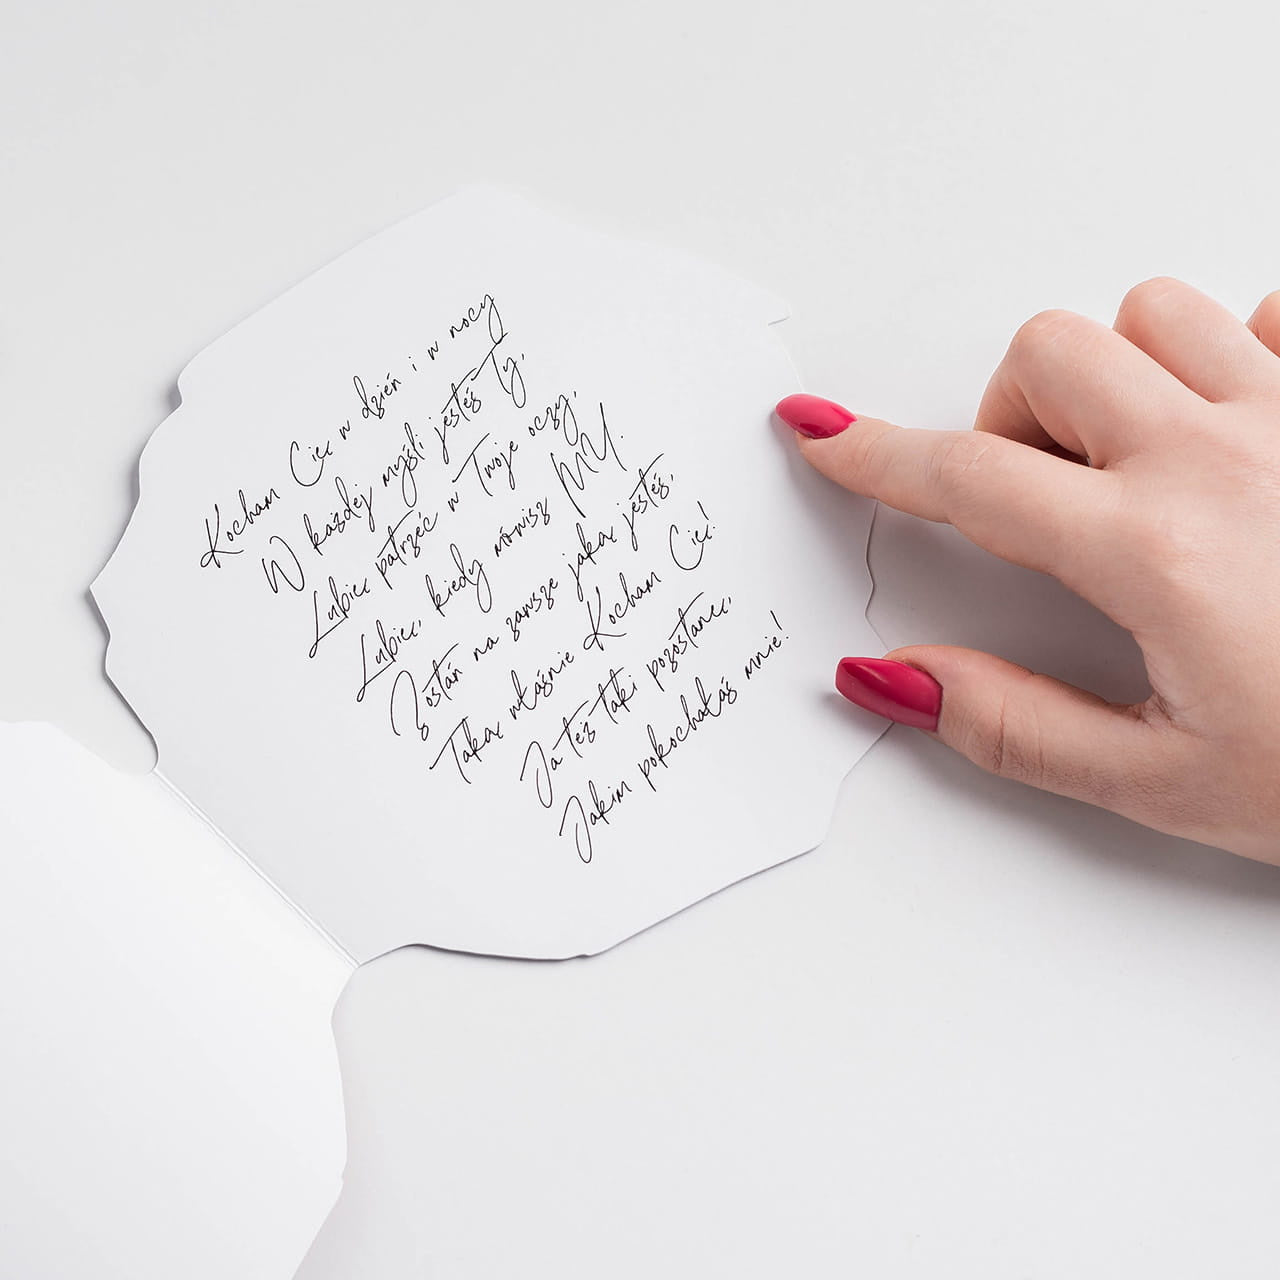 Kocham Cię w dzień i w nocy
W każdej myśli jesteś Ty,
Lubię patrzeć w Twoje oczy,
Lubię, kiedy mówisz MY.
Zostań na zawsze jaką jesteś,
Taką właśnie Kocham Cię!
Ja też taki pozostanę,
Jakim pokochałaś mnie!